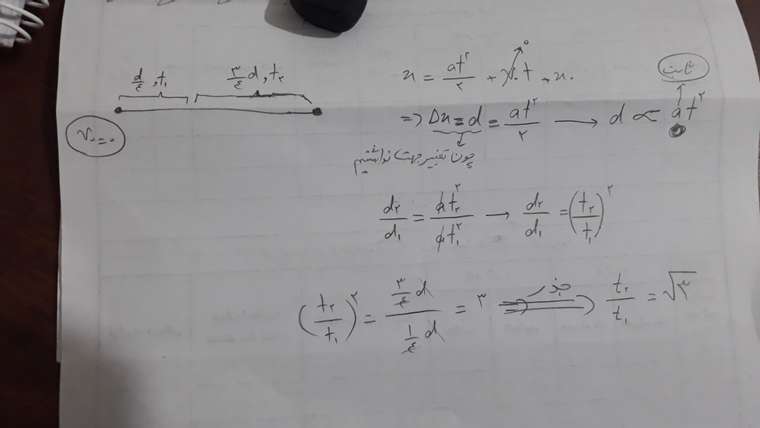 d/۴ , t₁   ۳/۴ d , t₂
v₀=۰
x = at²/۲ + v₀t + x₀
۰
ثابت
⇒ Δx = d = at²/۲ → d ∝ at²
چون تغییر جهت نداشتیم
d₂/d₁ = at₂²/at₁² → d₂/d₁ = (t₂/t₁)²
(t₂/t₁)² = (۳/۴ d)/(۱/۴ d) = ۳ ⇒ جذر t₂/t₁ = √۳